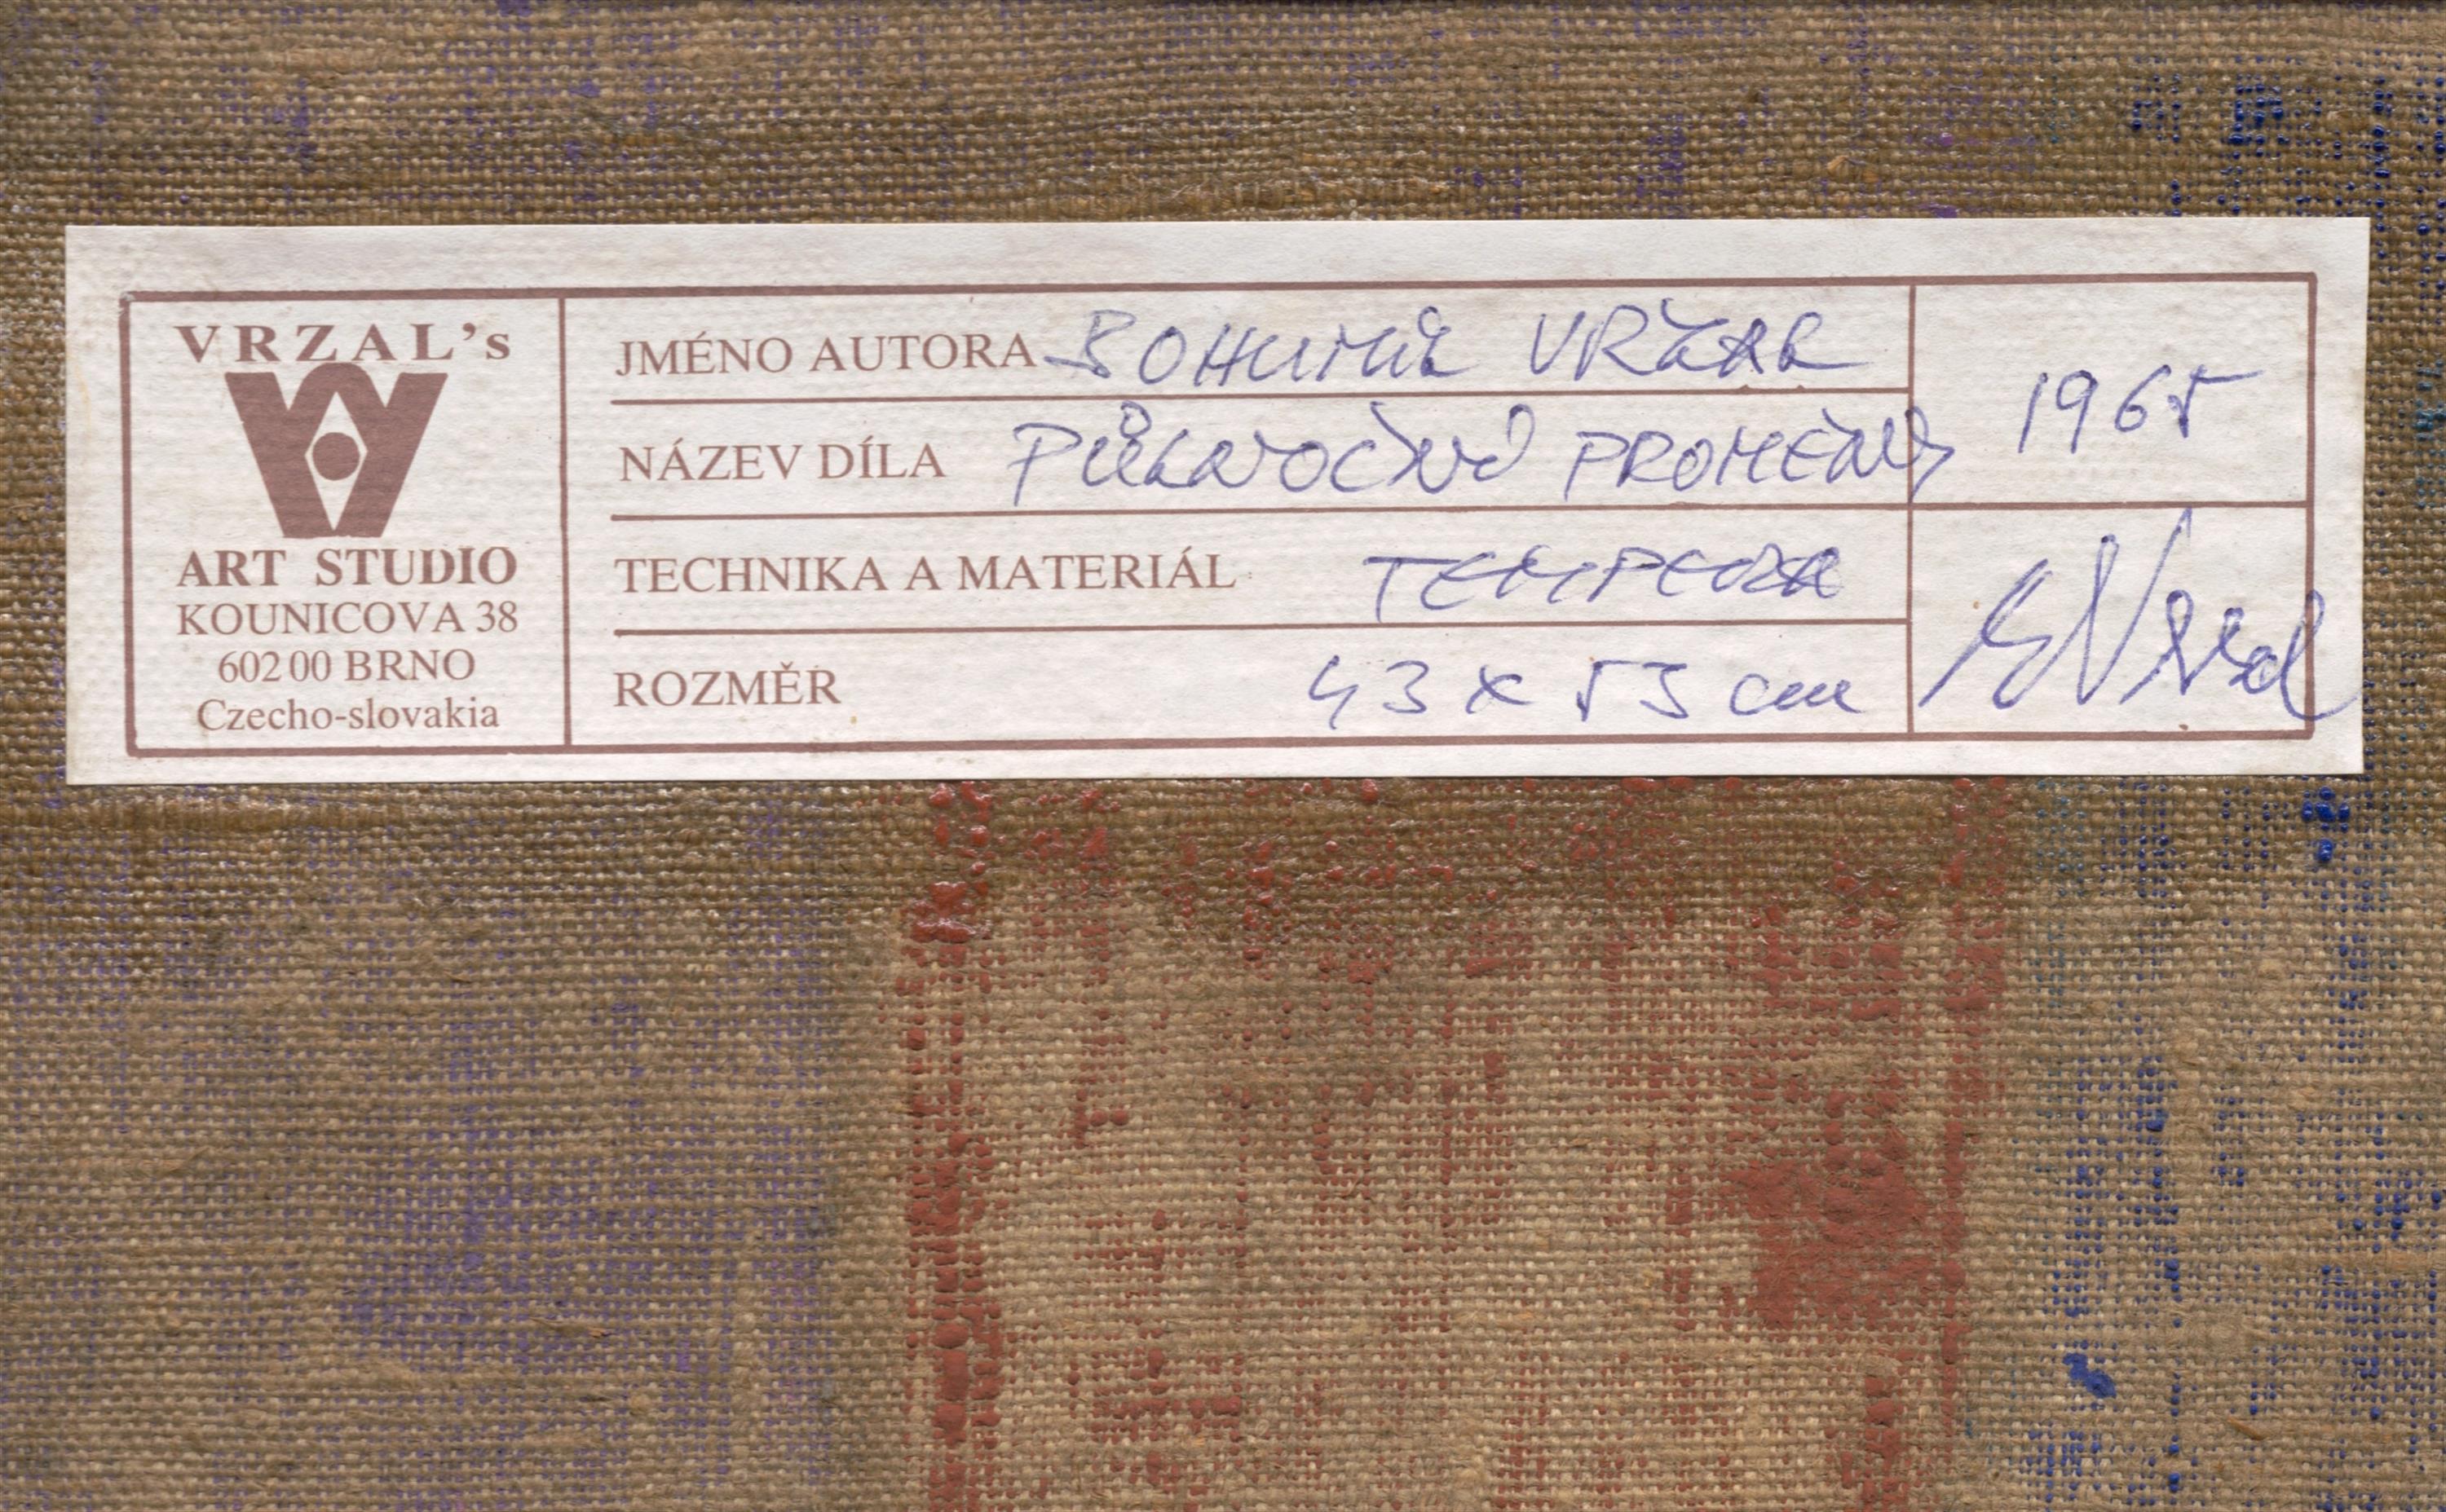 VRZAL's
ART STUDIO
KOUNICOVA 38
602 00 BRNO
Czecho-slovakia
JMÉNO AUTORA BOHUMIL VRZAL
NÁZEV DÍLA PŮLNOČNÍ PROMĚNY
TECHNIKA A MATERIÁL TEMPERA
ROZMĚR 43 x 53 cm
1965
BVrzal